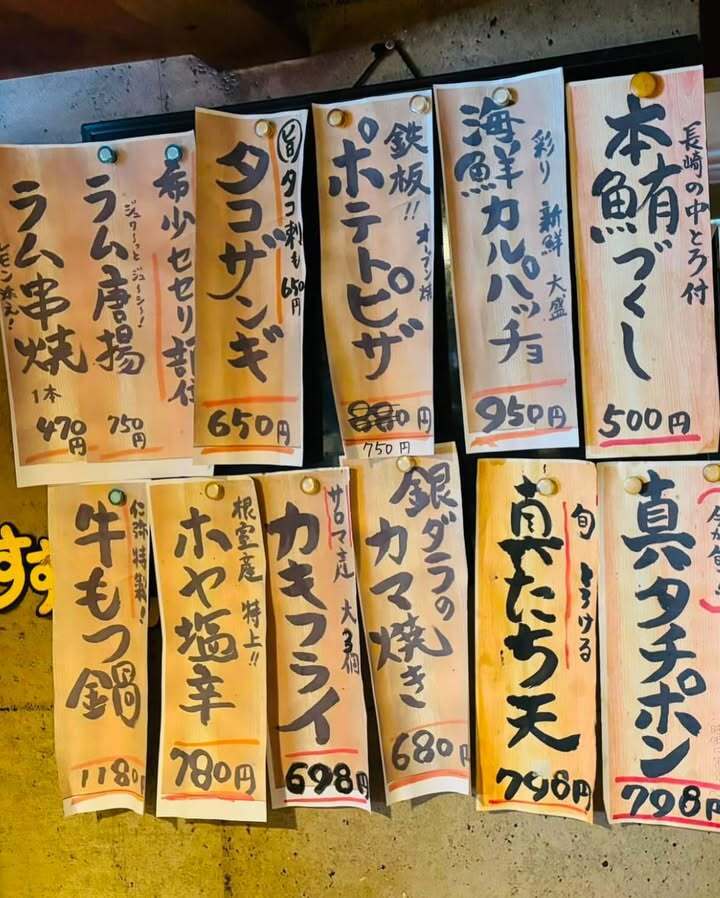 長崎の中とろ付
本鮪づくし
500円
彩り 新鮮 大盛
海鮮カルパッチョ
950円
鉄板!! オーブン焼
ポテトピザ
880円
750円
旨 タコ刺も650円
タコザンギ
650円
希少セセリ
ジュワ〜ッとジューシー!
ラム唐揚
750円
ラム串焼
レモン添え!
1本
470円
真タチポン
798円
旬 とろける
真たち天
798円
銀ダラの
カマ焼き
680円
サロマ産 大3個
カキフライ
698円
根室産 特上!!
ホヤ塩辛
780円
仁弥特製!
牛もつ鍋
1180円
すす